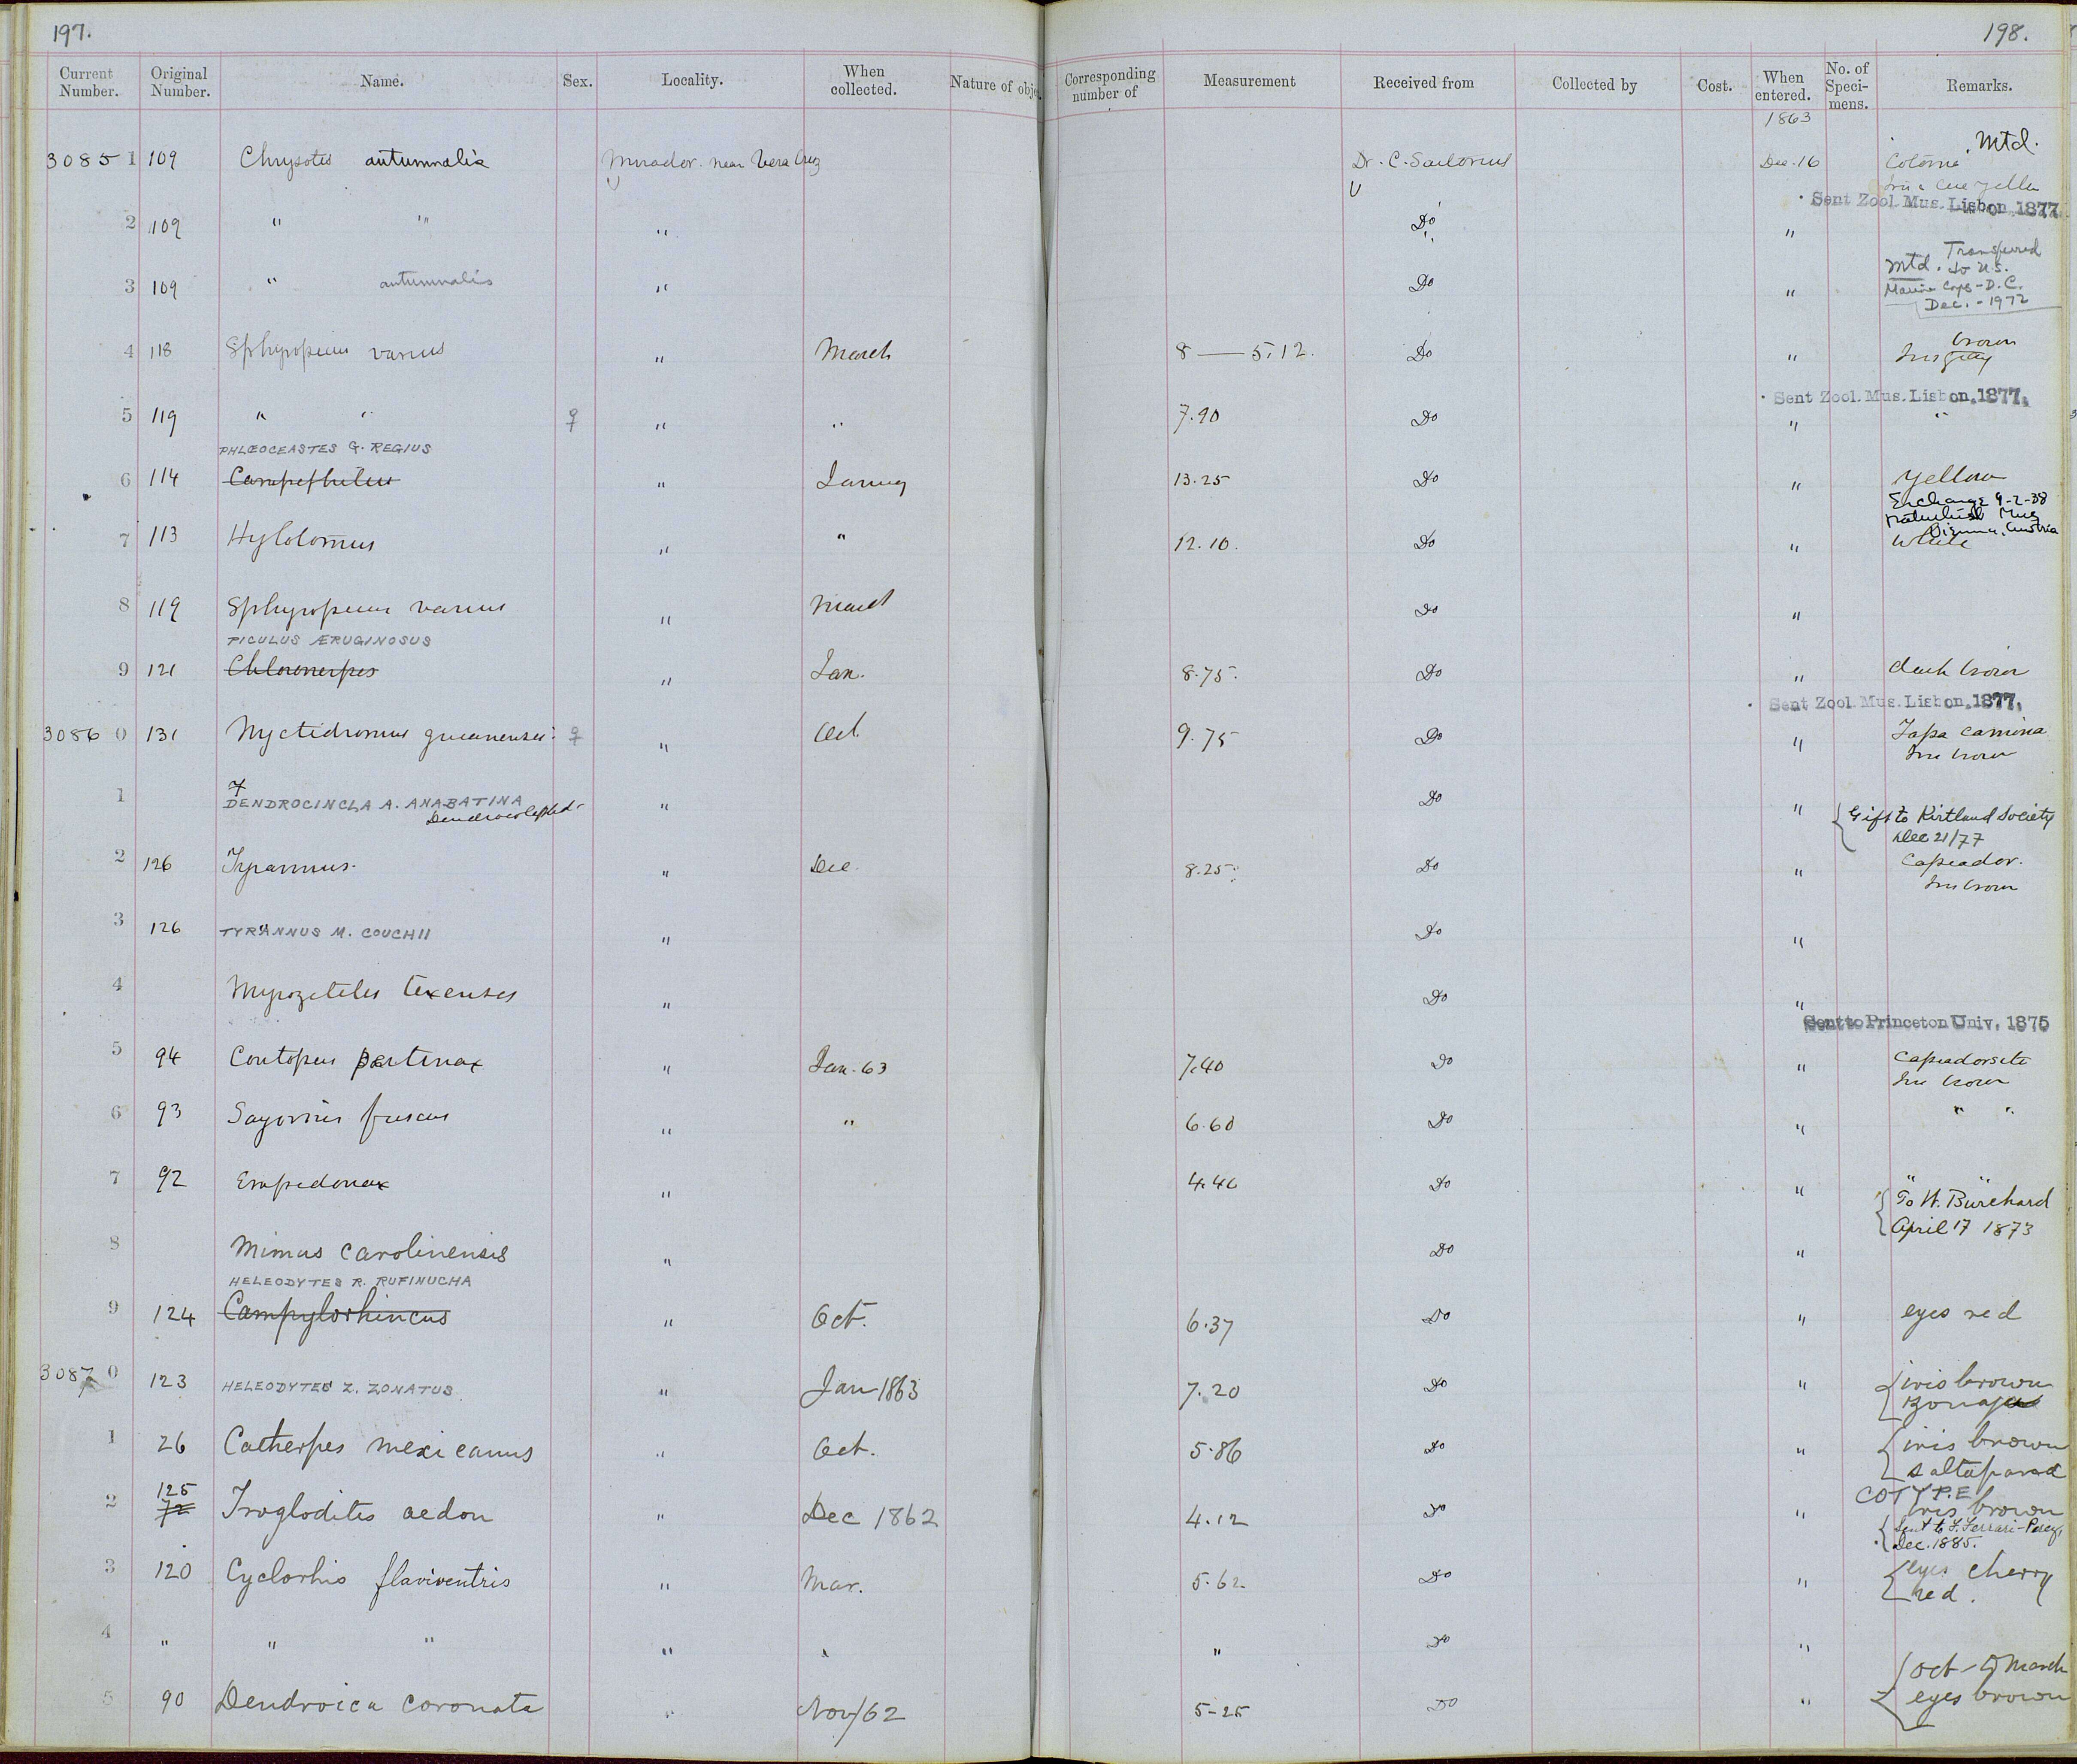 197.
198.
Current Number. Original Number. Name. Sex. Locality. When collected. Nature of obje Corresponding number of Measurement Received from Collected by Cost. When entered. No. of Speci-mens. Remarks.
1863
Mtd.
30851 109 Chrysotis autumnalis Mirador. near Vera Cruz Dr. C. Sartorius Dec. 16
Sent Zool. Mus. Lisbon. 1877.
2 109 " " " Do "
Transferred
Mtd. to U.S.
3 109 " autumnalis " Do " Marine Corps - D.C.
Dec. - 1972
brown
4 118 Sphyropicus varius " March 8 — 5.12. Do " Iris gray
Sent Zool. Mus. Lisbon. 1877.
5 119 " " ♀ " " 7.90 Do " "
PHLOEOCEASTES G. REGIUS
6 114 Campephilus " January 13.25 Do " Yellow
Exchange 9-2-38
Vienna, Austria
7 113 Hylotomus " " 12.10. Do " White
8 119 Sphyropicus varius " March Do "
PICULUS ÆRUGINOSUS
9 121 Chloronerpes " Jan. 8.75. Do " dark brown
Sent Zool. Mus. Lisbon. 1877.
30860 131 Nyctidromus guianensis ♀ " Oct. 9.75 Do " Tapa camina
Iris brown
1 DENDROCINCLA A. ANABATINA " Do "
Gift to Kirtland Society
Dec 21/77
2 126 Tyrannus. " Dec. 8.25 Do " Capeador.
Iris brown
3 126 TYRANNUS M. COUCHII " Do "
4 Myiozetetes texensis " Do "
Sent to Princeton Univ. 1875
5 94 Contopus pertinax " Jan. 63 7.40 Do " Capeadorsito
Iris brown
6 93 Sayornis fuscus " " 6.60 Do " " "
7 92 Empidonax " Do " " "
To W. Burchard
April 17 1873
8 Mimus carolinensis " Do "
HELEODYTES R. RUFINUCHA
9 124 Campylorhincus " Oct. 6.37 Do " eyes red
30870 123 HELEODYTES Z. ZONATUS " Jan 1863 7.20 Do " iris brown
1 26 Catherpes mexicanus " Oct. 5.86 Do " iris brown
saltapared
COTYPE
2 125 72 Troglodites aedon " Dec 1862 4.12 Do " iris brown
Sent to F. Ferrari-Perez,
Dec. 1885.
3 120 Cyclorhis flaviventris " Mar. 5.62 Do " eyes cherry
red.
4 " " " " " " Do "
Oct - March
5 90 Dendroica coronata " Nov/62 5-25 Do " eyes brown